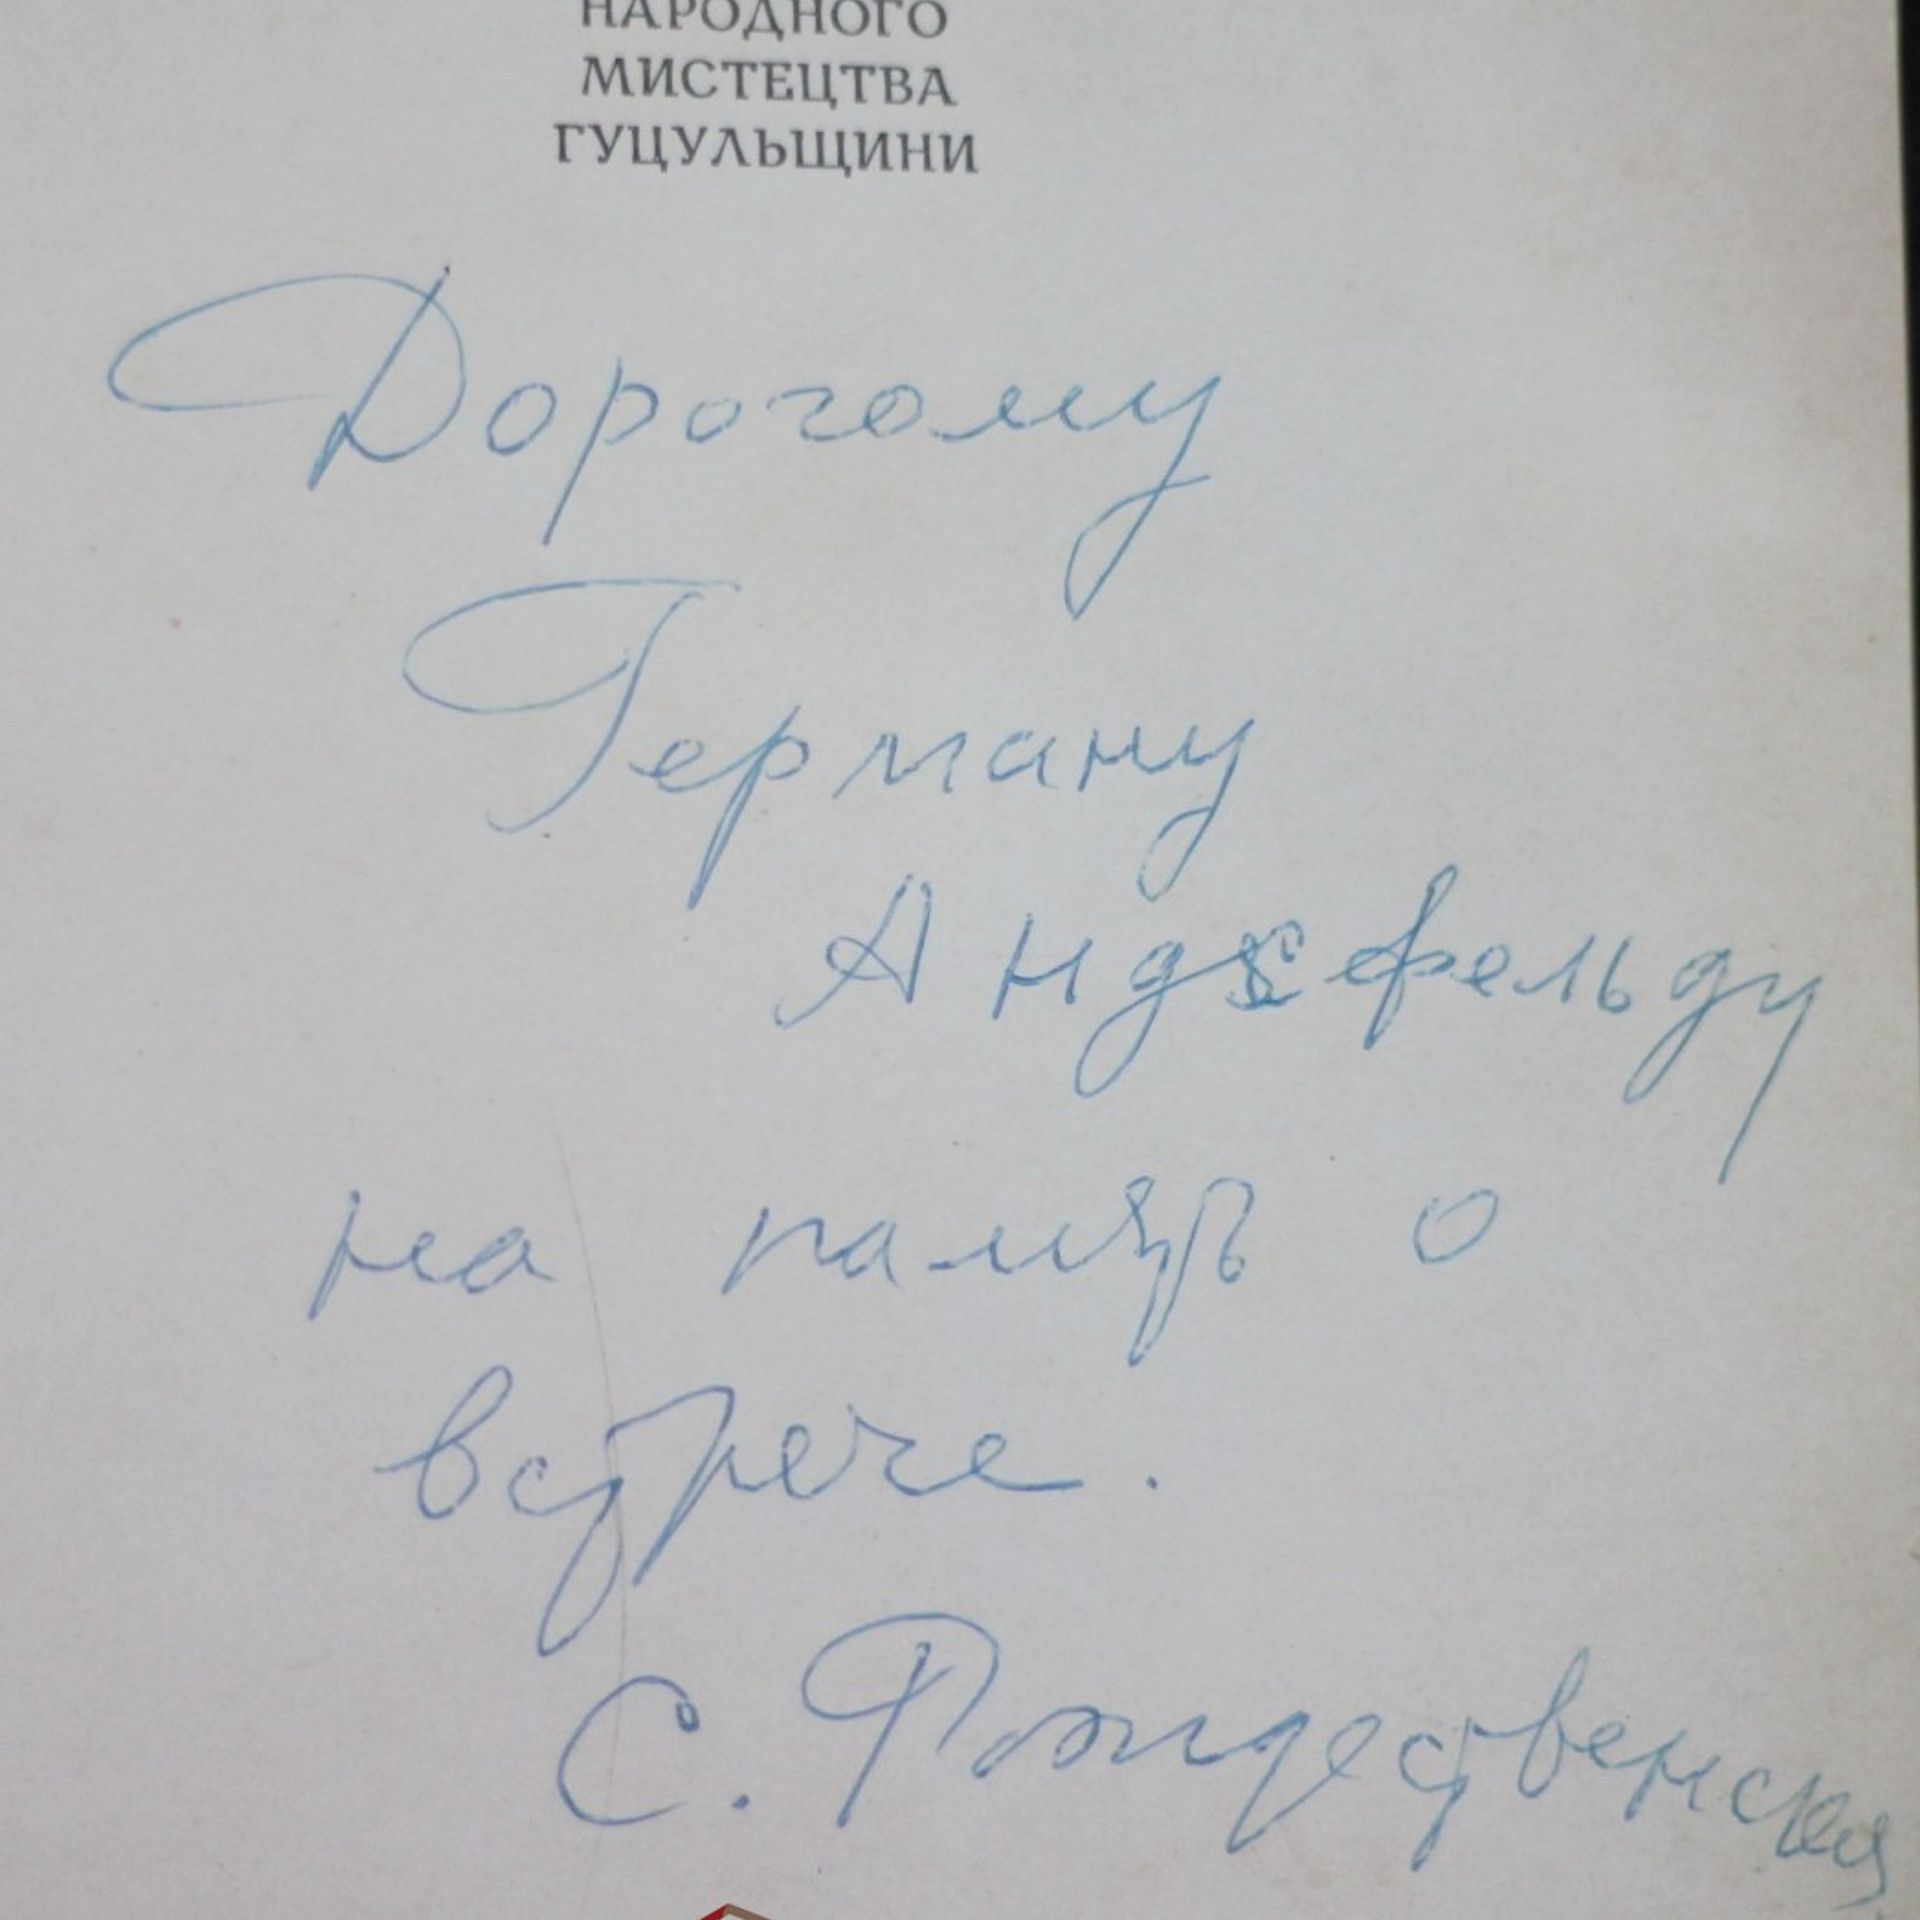 НАРОДНОГО
МИСТЕЦТВА
ГУЦУЛЬЩИНИ
Дорогому
Герману
Андсфельду
на память о
встрече.
С. Рождественский